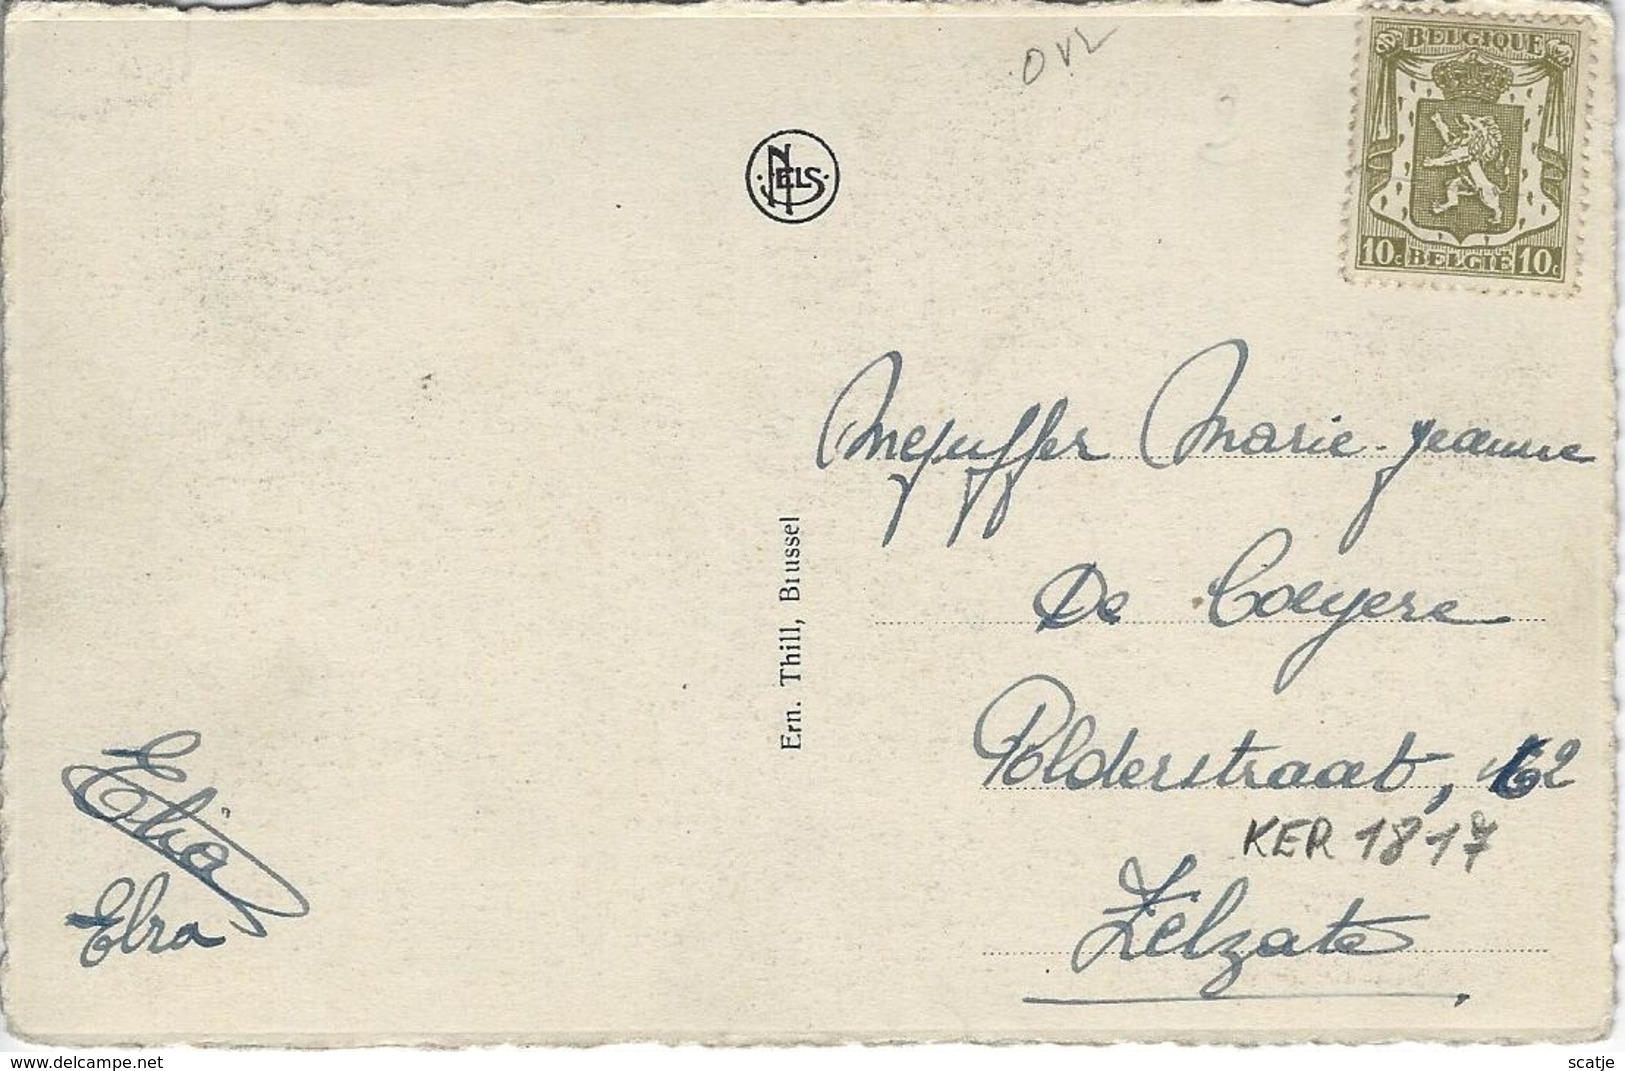 OVL
BELGIQUE
10c BELGIË 10c
NELS
Mejuffer Marie-Jeanne
De Coeyere
Polderstraat, 62
KER 1817
Zelzate
Ern. Thill, Brussel
Elia
Elza
www.delcampe.net
scatje